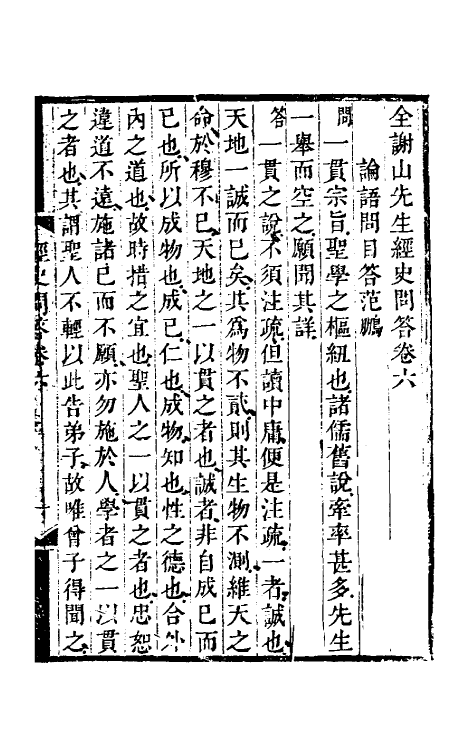 全謝山先生經史問答卷六
論語問目答范鵬
問一貫宗旨聖學之樞紐也諸儒舊說牽率甚多先生
一舉而空之願聞其詳
答一貫之說不須注疏但讀中庸便是注疏一者誠也
天地一誠而已矣其為物不貳則其生物不測維天之
命於穆不已天地之一以貫之者也誠者非自成己而
已也所以成物也成己仁也成物知也性之德也合外
內之道也故時措之宜也聖人之一以貫之者也忠恕
違道不遠施諸己而不願亦勿施於人學者之一以貫
之者也其謂聖人不輕以此告弟子故唯曾子得聞之
經史問答卷六